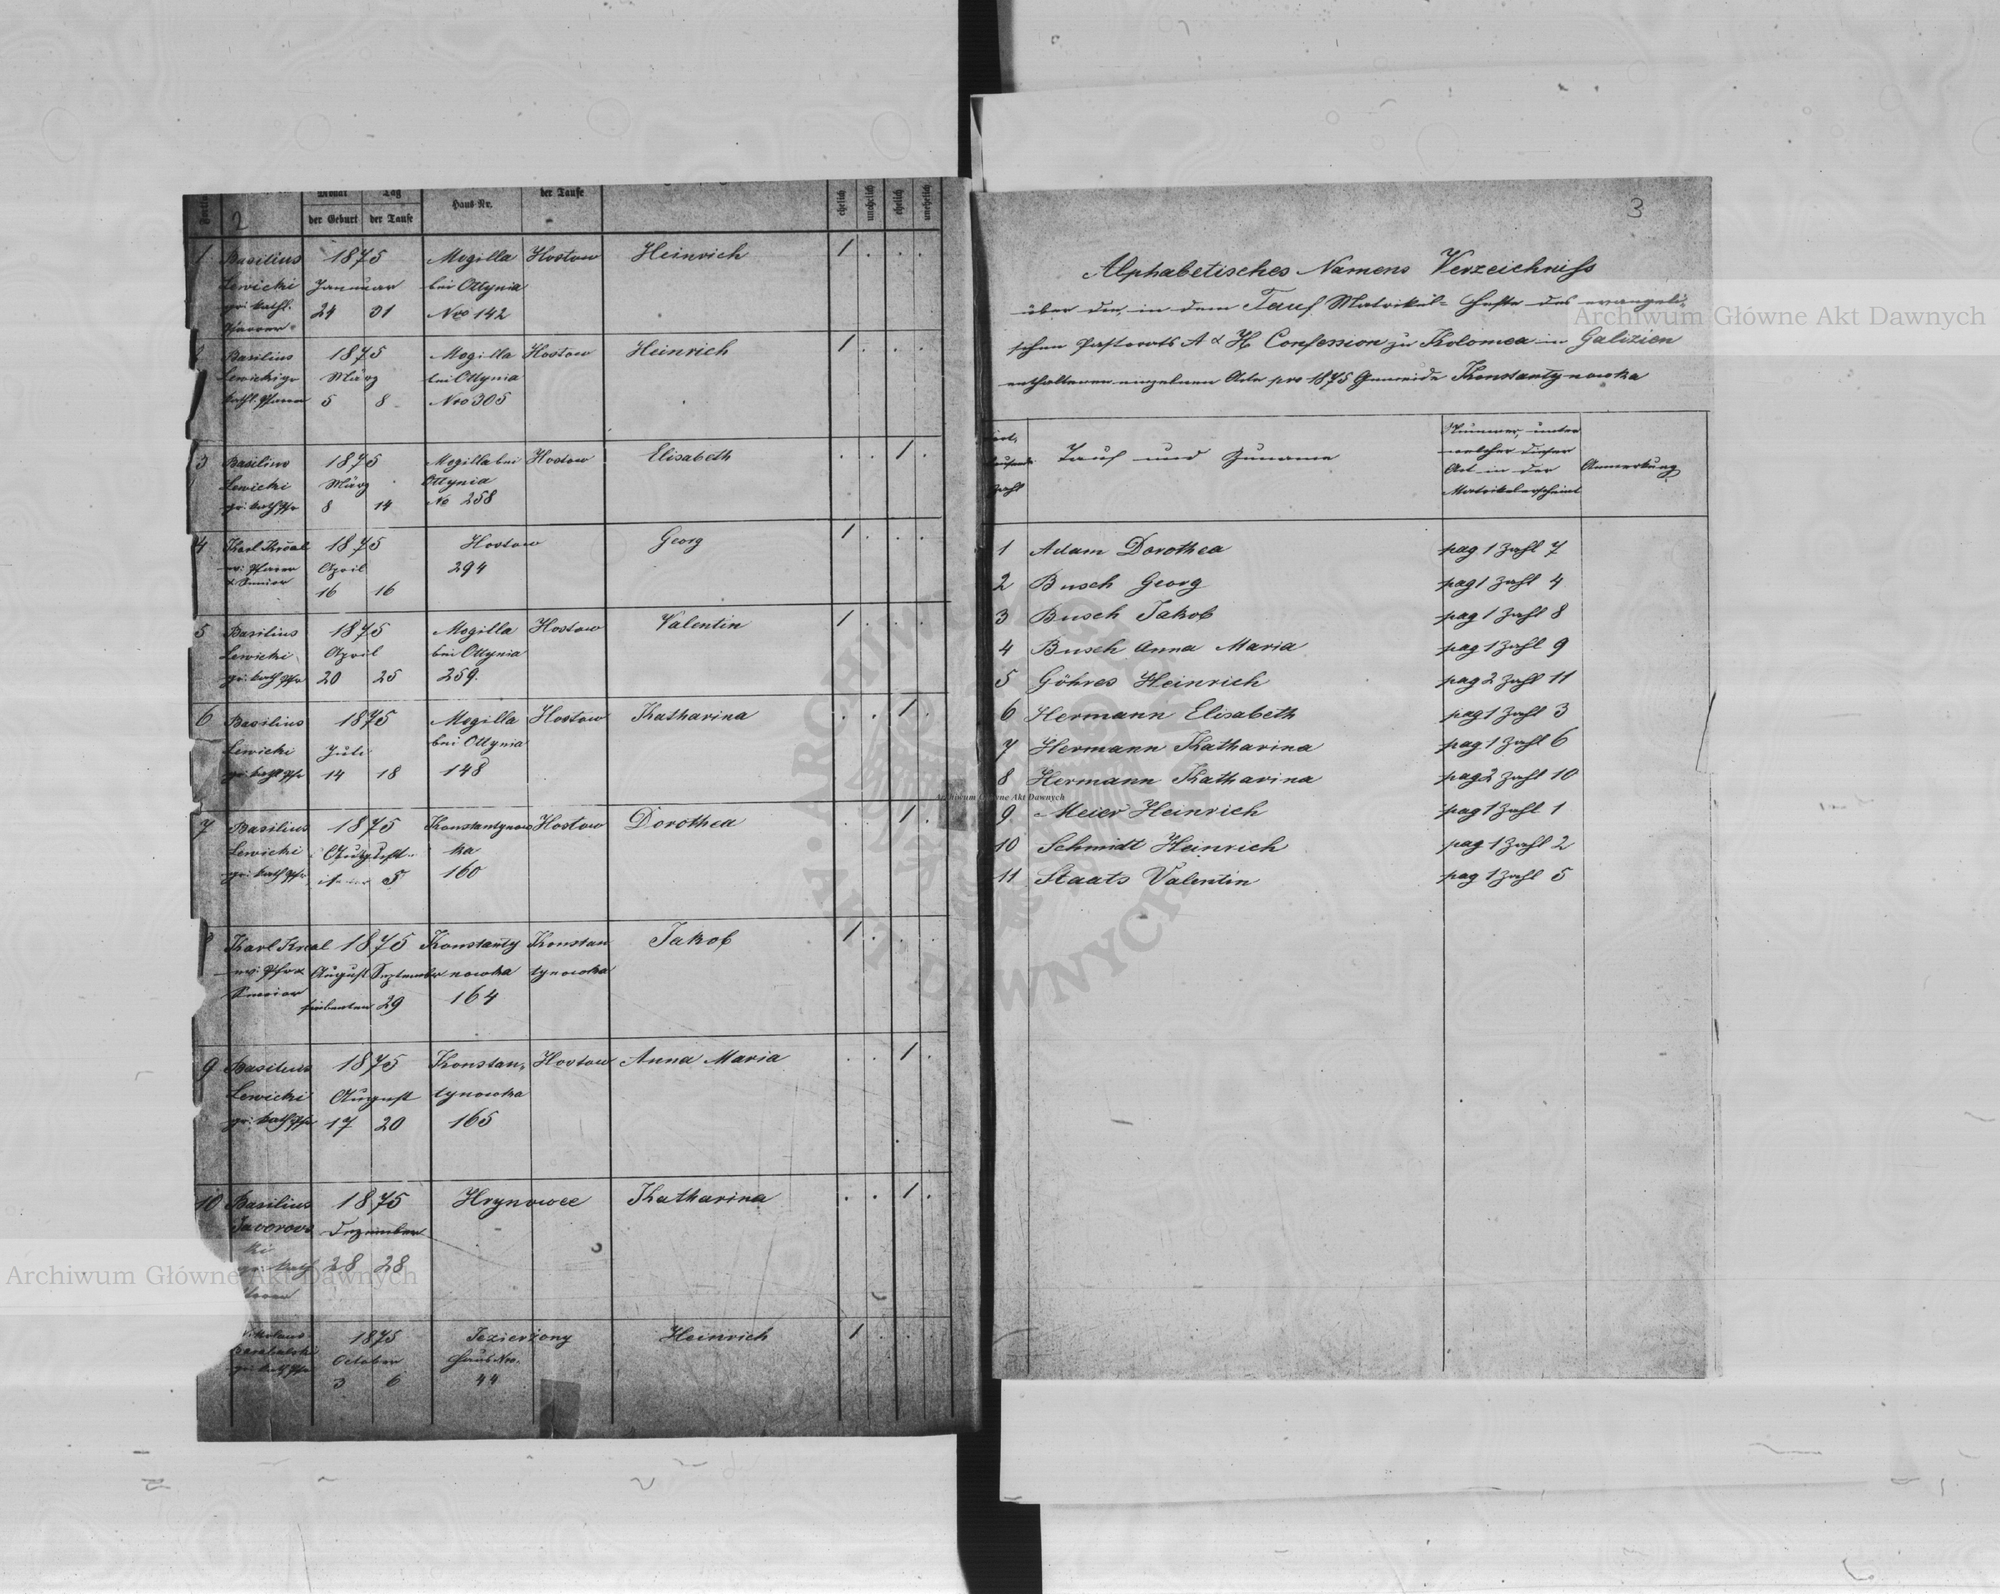 2
Monat
Tag
der Geburt
der Taufe
Haus Nr.
der Taufe
ehelich
unehelich
ehelich
unehelich
1 Basilius 1875 Mogilla Hostow Heinrich 1 . . .
Lewicki Januar bei Ottynia
gr: kathl. 24 31 Nro 142
Pfarrer
2 Basilius 1875 Mogilla Hostow Heinrich 1 . . .
Lewicki gr März bei Ottynia
kathl. Pfarrer 5 8 Nro 305
3 Basilius 1875 Mogilla bei Hostow Elisabeth . . 1 .
Lewicki März Ottynia
gr: kath Pfr 8 14 No 258
4 Karl Kroal 1875 Hostow Georg 1 . . .
ev: Pfarrer April 294
& Senior 16 16
5 Basilius 1875 Mogilla Hostow Valentin 1 . . .
Lewicki April bei Ottynia
gr: kath Pfr 20 25 259.
6 Basilius 1875 Mogilla Hostow Katharina . . 1 .
Lewicki Juli bei Ottynia
gr: kath Pfr 14 18 148
7 Basilius 1875 Konstantynow Hostow Dorothea . . 1 .
Lewicki ka
gr: kath Pfr 5 160
Karl Kroal 1875 Konstanty Konstan Jakob 1 . . .
ev: Pfr & August September nowka tynowka
Senior siebenten 29 164
9 Basilius 1875 Konstan, Hostow Anna Maria . . 1 .
Lewicki August tynowka
gr: kath Pfr 17 20 165
10 Basilius 1875 Hrynowce Katharina . . 1 .
Javorovs Dezember
ki
gr: kath 28 28
1875 Jezierżony Heinrich 1 . . .
October Haus Nro.
gr: kath Pfr 3 6 44
3
Alphabetisches Namens Verzeichniss
über die, in dem Tauf Matrikel= Hefte des evangeli=
schen Pastorats A & H Confession zu Kolomea in Galizien
enthaltenen einzelnen Acte pro 1875 Gemeinde Konstantynowka
Fort,
laufende
Zahl
Tauf und Zuname
Nummer, unter
welcher dieser
Act in der
Matrikel erscheint
Anmerkung
1 Adam Dorothea pag 1 Zahl 7
2 Busch Georg pag 1 Zahl 4
3 Busch Jakob pag 1 Zahl 8
4 Busch Anna Maria pag 1 Zahl 9
5 Göhres Heinrich pag 2 Zahl 11
6 Hermann Elisabeth pag 1 Zahl 3
7 Hermann Katharina pag 1 Zahl 6
8 Hermann Katharina pag 2 Zahl 10
9 Meier Heinrich pag 1 Zahl 1
10 Schmidt Heinrich pag 1 Zahl 2
11 Staats Valentin pag 1 Zahl 5
Archiwum Główne Akt Dawnych
Archiwum Główne Akt Dawnych
Archiwum Główne Akt Dawnych